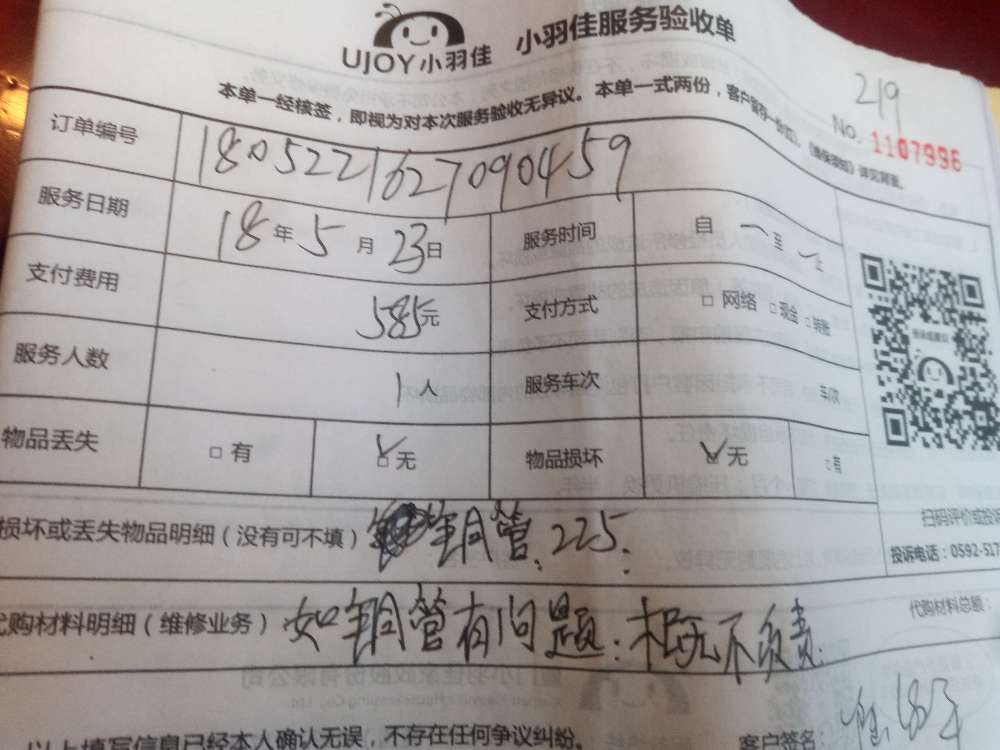 UJOY小羽佳 小羽佳服务验收单
219
本单一经核签，即视为对本次服务验收无异议。本单一式两份，客户留存一份
No. 1107996
订单编号 180522162709 0459
服务日期 18年5月23日 服务时间 自 至
支付费用 585元 支付方式 □ 网络 □ 现金 □ 转账
服务人数 1人 服务车次 车次
物品丢失 □ 有 □ 无 物品损坏 □ 无 □ 有
损坏或丢失物品明细（没有可不填） 铜管。225.
代购材料明细（维修业务） 如铜管有问题：概不负责. 代购材料总额：
扫码评价或投
投诉电话：0592-517
以上填写信息已经本人确认无误，不存在任何争议纠纷。 客户签名：